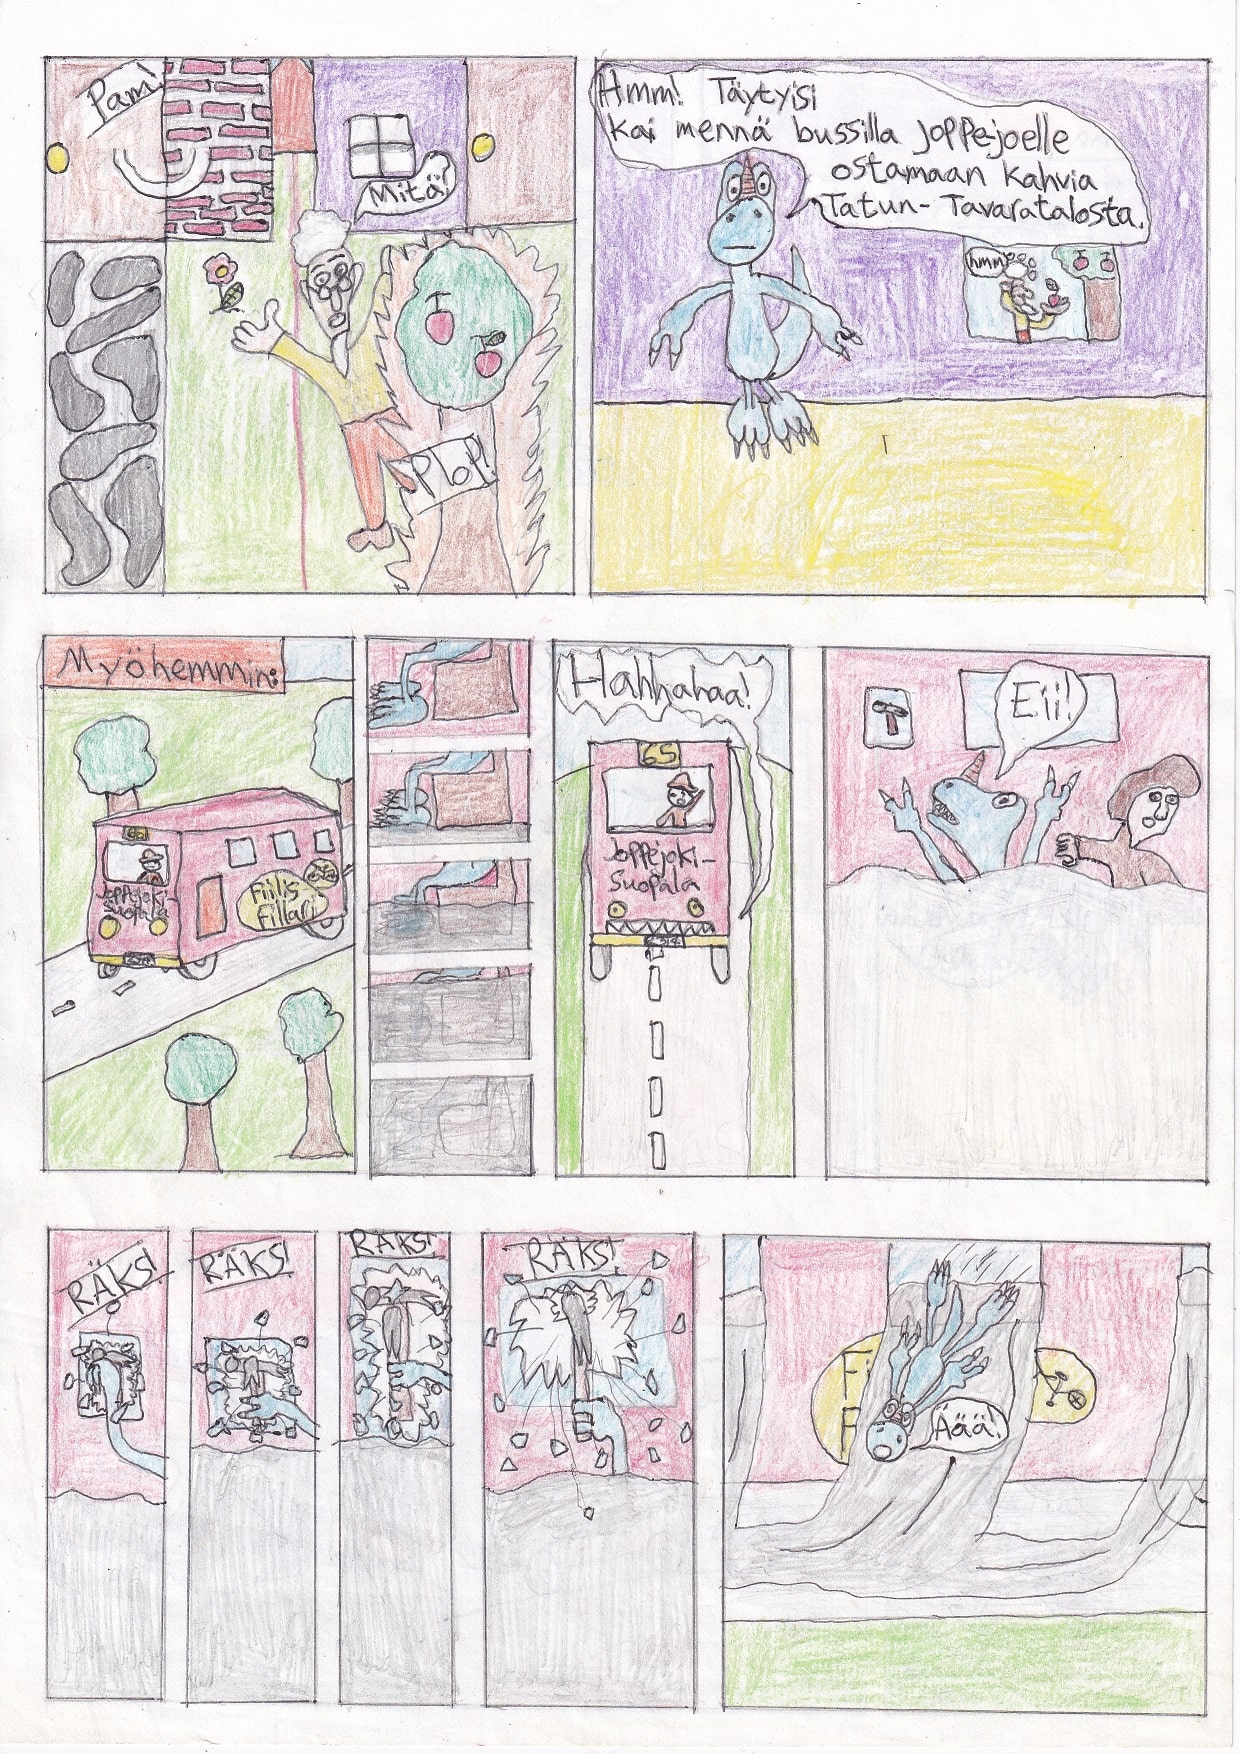 Pam!
Mitä?
PLOP!
Hmm! Täytyisi
kai mennä bussilla Joppejoelle
ostamaan kahvia
Tatun-Tavaratalosta.
hmm
Myöhemmin:
65
Joppejoki-
Suopala
Fiilis
Fillari
Hahhahaa!
65
Joppejoki-
Suopala
Eii!
RÄKS!
RÄKS!
RÄKS!
RÄKS!
Fi
F
Äää!